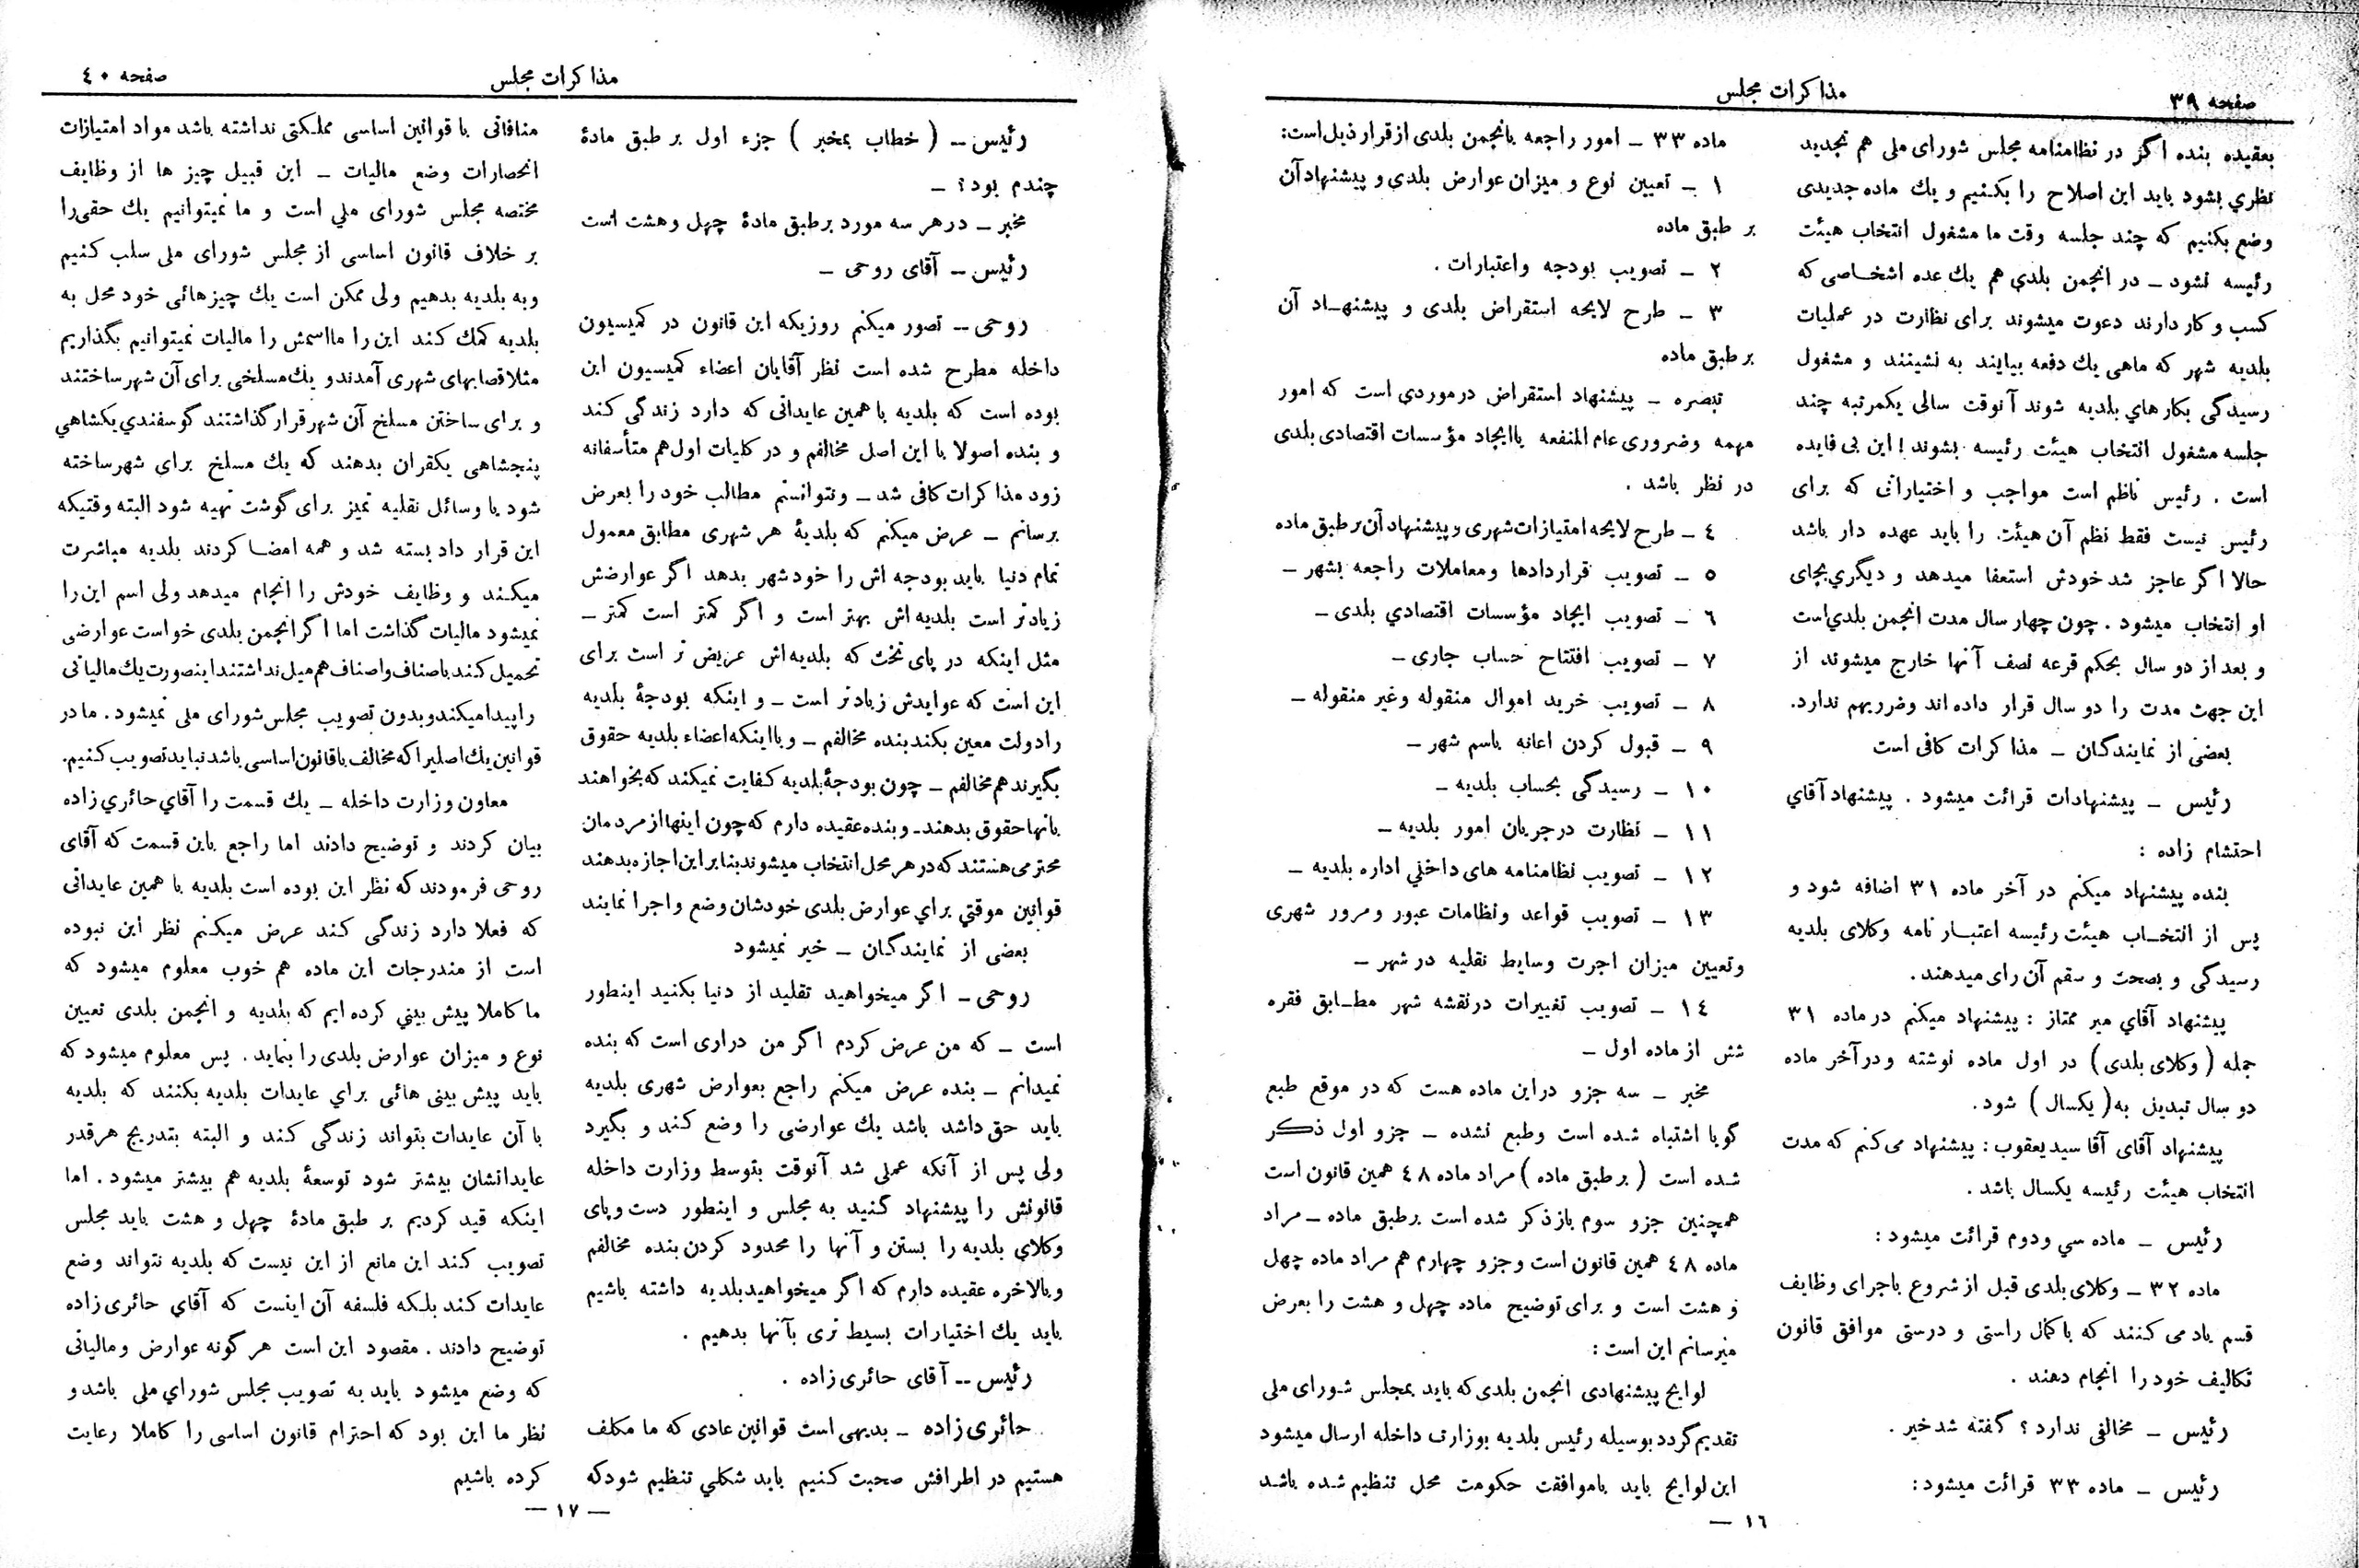 صفحه ۳۹
مذاکرات مجلس
بعقیده بنده اگر در نظامنامه مجلس شورای ملی هم تجدید
نظری بشود باید این اصلاح را بکنیم و یك ماده جدیدی
وضع بکنیم که چند جلسه وقت ما مشغول انتخاب هیئت
رئیسه نشود ـ در انجمن بلدی هم یك عده اشخاصی که
کسب و کار دارند دعوت میشوند برای نظارت در عملیات
بلدیه شهر که ماهی یك دفعه بیایند به نشینند و مشغول
رسیدگی بکارهای بلدیه شوند آنوقت سالی یکمرتبه چند
جلسه مشغول انتخاب هیئت رئیسه بشوند! این بی فایده
است . رئیس ناظم است مواجب و اختیاراتی که برای
رئیس نیست فقط نظم آن هیئت را باید عهده دار باشد
حالا اگر عاجز شد خودش استعفا میدهد و دیگری بجای
او انتخاب میشود . چون چهار سال مدت انجمن بلدی است
و بعد از دو سال بحکم قرعه نصف آنها خارج میشوند از
این جهت مدت را دو سال قرار داده اند وضرریهم ندارد.
بعضی از نمایندگان ـ مذاکرات کافی است
رئیس ـ پیشنهادات قرائت میشود . پیشنهاد آقای
احتشام زاده :
بنده پیشنهاد میکنم در آخر ماده ۳۱ اضافه شود و
پس از انتخاب هیئت رئیسه اعتبار نامه وکلای بلدیه
رسیدگی و بصحت و سقم آن رای میدهند.
پیشنهاد آقای میر ممتاز : پیشنهاد میکنم در ماده ۳۱
جمله ( وکلای بلدی ) در اول ماده نوشته و در آخر ماده
دو سال تبدیل به ( یکسال ) شود.
پیشنهاد آقای آقا سید یعقوب : پیشنهاد می کنم که مدت
انتخاب هیئت رئیسه یکسال باشد .
رئیس ـ ماده سی و دوم قرائت میشود :
ماده ۳۲ ـ وکلای بلدی قبل از شروع باجرای وظایف
قسم یاد می کنند که با کمال راستی و درستی موافق قانون
تکالیف خود را انجام دهند .
رئیس ـ مخالفی ندارد ؟ گفته شد خیر .
رئیس ـ ماده ۳۳ قرائت میشود :
ماده ۳۳ ـ امور راجعه بانجمن بلدی از قرار ذیل است:
۱ ـ تعیین نوع و میزان عوارض بلدی و پیشنهاد آن
بر طبق ماده
۲ ـ تصویب بودجه و اعتبارات .
۳ ـ طرح لایحه استقراض بلدی و پیشنهاد آن
بر طبق ماده
تبصره ـ پیشنهاد استقراض در موردی است که امور
مهمه وضروری عام المنفعه یا ایجاد مؤسسات اقتصادی بلدی
در نظر باشد .
٤ ـ طرح لایحه امتیازات شهری و پیشنهاد آن بر طبق ماده
٥ ـ تصویب قراردادها ومعاملات راجعه بشهر ـ
٦ ـ تصویب ایجاد مؤسسات اقتصادی بلدی ـ
۷ ـ تصویب افتتاح حساب جاری ـ
۸ ـ تصویب خرید اموال منقوله وغیر منقوله ـ
۹ ـ قبول کردن اعانه باسم شهر ـ
۱۰ ـ رسیدگی بحساب بلدیه ـ
۱۱ ـ نظارت در جریان امور بلدیه ـ
۱۲ ـ تصویب نظامنامه های داخلی اداره بلدیه ـ
۱۳ ـ تصویب قواعد ونظامات عبور ومرور شهری
وتعیین میزان اجرت وسایط نقلیه در شهر ـ
۱٤ ـ تصویب تغییرات در نقشه شهر مطابق فقره
شش از ماده اول ـ
مخبر ـ سه جزو در این ماده هست که در موقع طبع
گویا اشتباه شده است وطبع نشده ـ جزو اول ذکر
شده است ( بر طبق ماده ) مراد ماده ٤۸ همین قانون است
همچنین جزو سوم باز ذکر شده است بر طبق ماده ـ مراد
ماده ٤۸ همین قانون است و جزو چهارم هم مراد ماده چهل
و هشت است و برای توضیح ماده چهل و هشت را بعرض
میرسانم این است :
لوایح پیشنهادی انجمن بلدی که باید بمجلس شورای ملی
تقدیم گردد بوسیله رئیس بلدیه بوزارت داخله ارسال میشود
این لوایح باید با موافقت حکومت محل تنظیم شده باشد
۱٦ —
مذاکرات مجلس
صفحه ٤۰
رئیس ـ ( خطاب بمخبر ) جزء اول بر طبق مادۀ
چندم بود؟ ـ
مخبر ـ در هر سه مورد بر طبق مادۀ چهل و هشت است
رئیس ـ آقای روحی ـ
روحی ـ تصور میکنم روزیکه این قانون در کمیسیون
داخله مطرح شده است نظر آقایان اعضاء کمیسیون این
بوده است که بلدیه با همین عایداتی که دارد زندگی کند
و بنده اصولا با این اصل مخالفم و در کلیات اول هم متأسفانه
زود مذاکرات کافی شد ـ ونتوانستم مطالب خود را بعرض
برسانم ـ عرض میکنم که بلدیۀ هر شهری مطابق معمول
تمام دنیا باید بودجه اش را خود شهر بدهد اگر عوارضش
زیادتر است بلدیه اش بهتر است و اگر کمتر است کمتر ـ
مثل اینکه در پای تخت که بلدیه اش عریض تر است برای
این است که عوایدش زیادتر است ـ و اینکه بودجۀ بلدیه
را دولت معین بکند بنده مخالفم ـ و با اینکه اعضاء بلدیه حقوق
بگیرند هم مخالفم ـ چون بودجۀ بلدیه کفایت نمیکند که بخواهند
بانها حقوق بدهند ـ و بنده عقیده دارم که چون اینها از مردمان
محترمی هستند که در هر محل انتخاب میشوند بنا بر این اجازه بدهند
قوانین موقتی برای عوارض بلدی خودشان وضع و اجرا نمایند
بعضی از نمایندگان ـ خیر نمیشود
روحی ـ اگر میخواهید تقلید از دنیا بکنید اینطور
است ـ که من عرض کردم اگر من دراری است که بنده
نمیدانم ـ بنده عرض میکنم راجع بعوارض شهری بلدیه
باید حق داشد باشد یك عوارضی را وضع کند و بگیرد
ولی پس از آنکه عملی شد آنوقت بتوسط وزارت داخله
قانونش را پیشنهاد کنید به مجلس و اینطور دست و پای
وکلای بلدیه را بستن و آنها را محدود کردن بنده مخالفم
وبالاخره عقیده دارم که اگر میخواهید بلدیه داشته باشیم
باید یك اختیارات بسیط تری بآنها بدهیم .
رئیس ـ آقای حائری زاده .
حائری زاده ـ بدیهی است قوانین عادی که ما مکلف
هستیم در اطرافش صحبت کنیم باید شکلی تنظیم شود که
منافاتی با قوانین اساسی مملکتی نداشته باشد مواد امتیازات
انحصارات وضع مالیات ـ این قبیل چیز ها از وظایف
مختصه مجلس شورای ملی است و ما نمیتوانیم یك حقی را
بر خلاف قانون اساسی از مجلس شورای ملی سلب کنیم
وبه بلدیه بدهیم ولی ممکن است یك چیزهائی خود محل به
بلدیه کمك کند این را ما اسمش را مالیات نمیتوانیم بگذاریم
مثلا قصابهای شهری آمدند و یك مسلخی برای آن شهر ساختند
و برای ساختن مسلخ آن شهر قرار گذاشتند گوسفندی یکشاهی
پنجشاهی یکقران بدهند که یك مسلخ برای شهر ساخته
شود یا وسائل نقلیه تمیز برای گوشت تهیه شود البته وقتیکه
این قرار داد بسته شد و همه امضا کردند بلدیه مباشرت
میکند و وظایف خودش را انجام میدهد ولی اسم این را
نمیشود مالیات گذاشت اما اگر انجمن بلدی خواست عوارضی
تحمیل کند باصناف و اصناف هم میل نداشتند اینصورت یك مالیاتی
را پیدا میکند و بدون تصویب مجلس شورای ملی نمیشود . ما در
قوانین یك اصلیرا که مخالف با قانون اساسی باشد نباید تصویب کنیم.
معاون وزارت داخله ـ یك قسمت را آقای حائری زاده
بیان کردند و توضیح دادند اما راجع باین قسمت که آقای
روحی فرمودند که نظر این بوده است بلدیه با همین عایداتی
که فعلا دارد زندگی کند عرض میکنم نظر این نبوده
است از مندرجات این ماده هم خوب معلوم میشود که
ما کاملا پیش بینی کرده ایم که بلدیه و انجمن بلدی تعیین
نوع و میزان عوارض بلدی را بنماید . پس معلوم میشود که
باید پیش بینی هائی برای عایدات بلدیه بکنند که بلدیه
با آن عایدات بتواند زندگی کند و البته بتدریج هر قدر
عایداتشان بیشتر شود توسعۀ بلدیه هم بیشتر میشود . اما
اینکه قید کردیم بر طبق مادۀ چهل و هشت باید مجلس
تصویب کند این مانع از این نیست که بلدیه نتواند وضع
عایدات کند بلکه فلسفه آن اینست که آقای حائری زاده
توضیح دادند . مقصود این است هر گونه عوارض و مالیاتی
که وضع میشود باید به تصویب مجلس شورای ملی باشد و
نظر ما این بود که احترام قانون اساسی را کاملا رعایت
کرده باشیم
— ۱۷ —